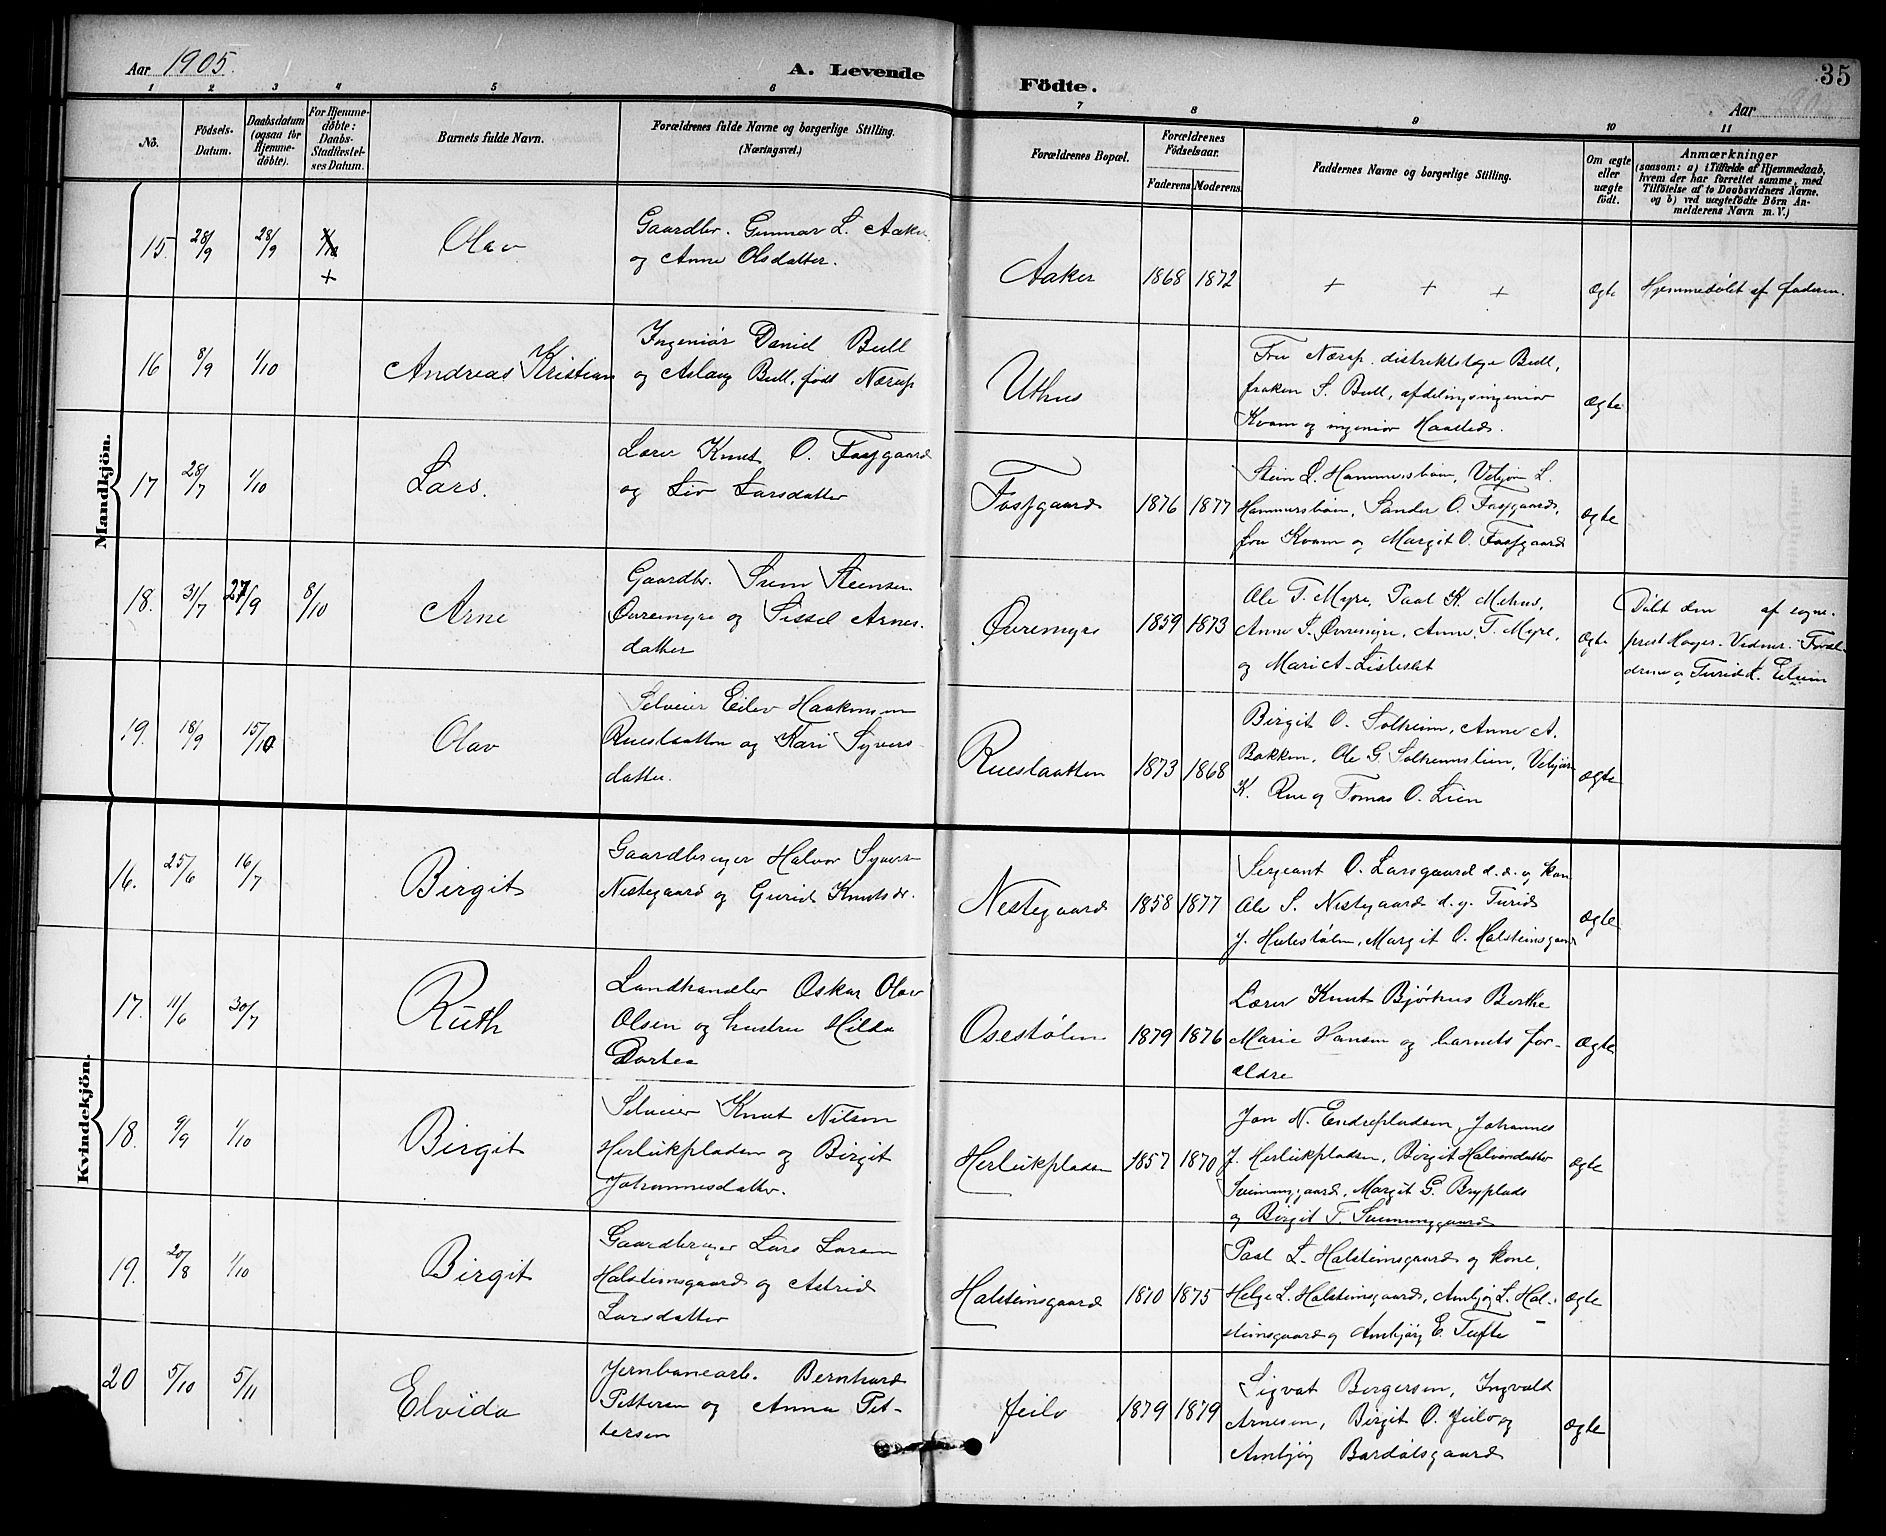 Aar 1905.
A. Levende Födte.
35
Aar
1 2 3 4 5 6 7 8 9 10 11
No.
Födsels-Datum.
Daabsdatum (ogsaa for Hjemme-döbte).
For Hjemme-döbte: Daabs-Stadfæstel-ses Datum.
Barnets fulde Navn.
Forældrenes fulde Navne og borgerlige Stilling. (Næringsvei.)
Forældrenes Bopæl.
Forældrenes Födselsaar.
Faderens Moderens
Faddernes Navne og borgerlige Stilling.
Om ægte eller uægte födt.
Anmærkninger
(saasom: a) i Tilfælde af Hjemmedaab,
hvem der har forrettet samme, med
Tilföielse af to Daabsvidners Navne.
og b) ved uægtefödte Börn An-
melderens Navn m. V.)
Mandkjön.
15. 28/9 28/9 + Olav
Gaardbr. Gunnar L. Aaker
og Anne Olsdatter.
Aaker 1868 1872 + + + Ægte Hjemmedøbt af faderen.
16 8/9 1/10 Andreas Kristian
Ingeniør Daniel Bull
og Aslaug Bull, født Nærup
Uthus
Fru Nærup, distriktslæge Bull,
frøken S. Bull, afdelingsingeniør
Kvam og ingeniør Haarstad.
Ægte
17 28/7 1/10 Lars.
Lærer Knut O. Fossgaard
og Liv Larsdatter
Fossgaard 1876 1877
Stein L. Hammersbøen, Vebjørn L.
Hammersbøen, Sander O. Fossgaard,
fru Kvam og Margit O. Fossgaard
ægte
18. 31/7 27/9 8/10 Arne
Gaardbr. Svein Steinsen
Øvremyre og Sissel Arnes-
datter
Øvremyre 1859 1873
Ole T. Myre, Paal K. Mehus,
Anne S. Øvremyre, Anne T. Myre,
og Mari A. Listeslet
Ægte
Døbt den af sogne-
prest Høyer. Vidner: Foræl-
drene og Turid Eileim
19. 18/9 15/10 Olav
Selveier Eilev Haakonsen
Rueslaatten og Kari Syvers-
datter.
Rueslaatten 1873 1868
Birgit O. Solheim, Anne A.
Bakken, Ole G. Solheimslien, Vebjørn
K. Rue og Tomas O. Lien
ægte
Kvindekjön.
16. 25/6 16/7 Birgit
Gaardbruger Halvor Syversen
Nestegaard og Gurid Knutsdr.
Nestegaard 1858 1877
Sergeant O. Larsgaard d.æ. og kone
Ole S. Nestegaard d.y. Turid
J. Hulestølen, Margit O. Halsteinsgaard
Ægte
17. 11/6 30/7 Ruth
Landhandler Oskar Olav
Olsen og hustru Hilda
Dortea
Osestølen 1879 1876
Lærer Knut Bjørhus Berthe
Marie Hansen og barnets for-
ældre
Ægte
18. 9/9 1/10 Birgit
Selveier Knut Nilsen
Herleikpladsen og Birgit
Johannesdatter.
Herleikpladsen 1857 1870
Jon N. Endrepladsen, Johannes
J. Herleikpladsen, Birgit Halvorsdatter
Sveinungsgaard, Margit G. Bryplads
og Birgit T. Sveinunggaard
ægte
19. 20/8 1/10 Birgit
Gaardbruger Lars Larsen
Halsteinsgaard og Astrid
Larsdatter
Halsteinsgaard 1870 1875
Paal L. Halsteinsgaard og kone,
Helge L. Halsteinsgaard, Ambjørg L. Hal-
steinsgaard og Ambjørg E. Tufte
ægte
20 5/10 5/11 Elvida
Jernbanearb. Bernhard
Pettersen og Anna Pet-
tersen
Jeilo 1879 1879
Sigvat Borgersen, Ingvald
Arnesen, Birgit O. Jeilo og
Ambjørg Bardølsgaard
ægte